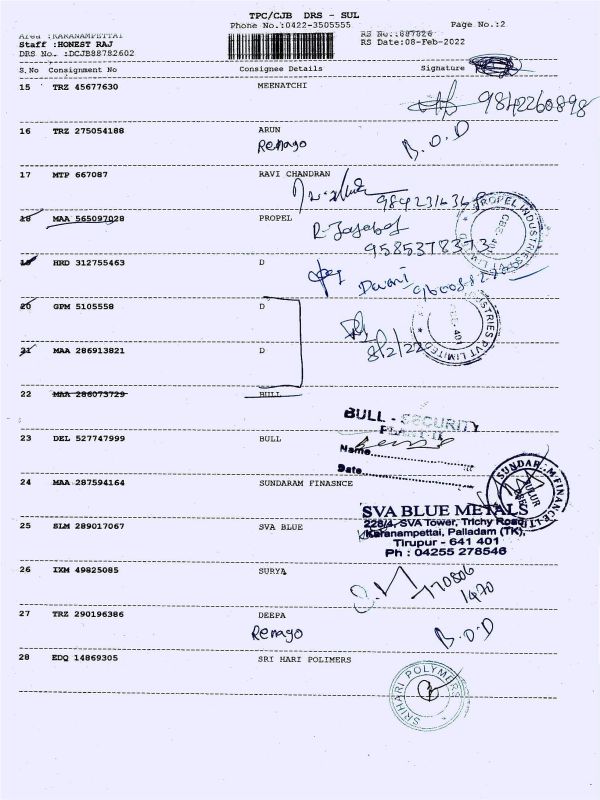 TPC/CJB DRS - SUL
Phone No.:0422-3505555
Page No.:2
Area :KARANAMPETTAI
RS No.:887826
Staff :HONEST RAJ
RS Date:08-Feb-2022
DRS No. :DCJB88782602
S.No Consignment No Consignee Details Signature
15 TRZ 45677630 MEENATCHI
9842260898
16 TRZ 275054188 ARUN
Remago B.O.D
17 MTP 667087 RAVI CHANDRAN
18 MAA 565097028 PROPEL
9585378373
PROPEL INDUSTRIES
19 HRD 312755463 D
Devani
20 GPM 5105558 D
8/2/22
PVT LIMITED
21 MAA 286913821 D
22 MAA 286073729 BULL
BULL - SECURITY
PLANT-II
23 DEL 527747999 BULL
Name
Date
24 MAA 287594164 SUNDARAM FINASNCE
SULUR
SVA BLUE METALS
228/4, SVA Tower, Trichy Road,
25 SLM 289017067 SVA BLUE
Karanampettai, Palladam (TK),
Tirupur - 641 401
Ph : 04255 278546
26 IXM 49825085 SURYA
27 TRZ 290196386 DEEPA
Remago B.O.D
28 EDQ 14869305 SRI HARI POLIMERS
SRIHARI POLYMERS